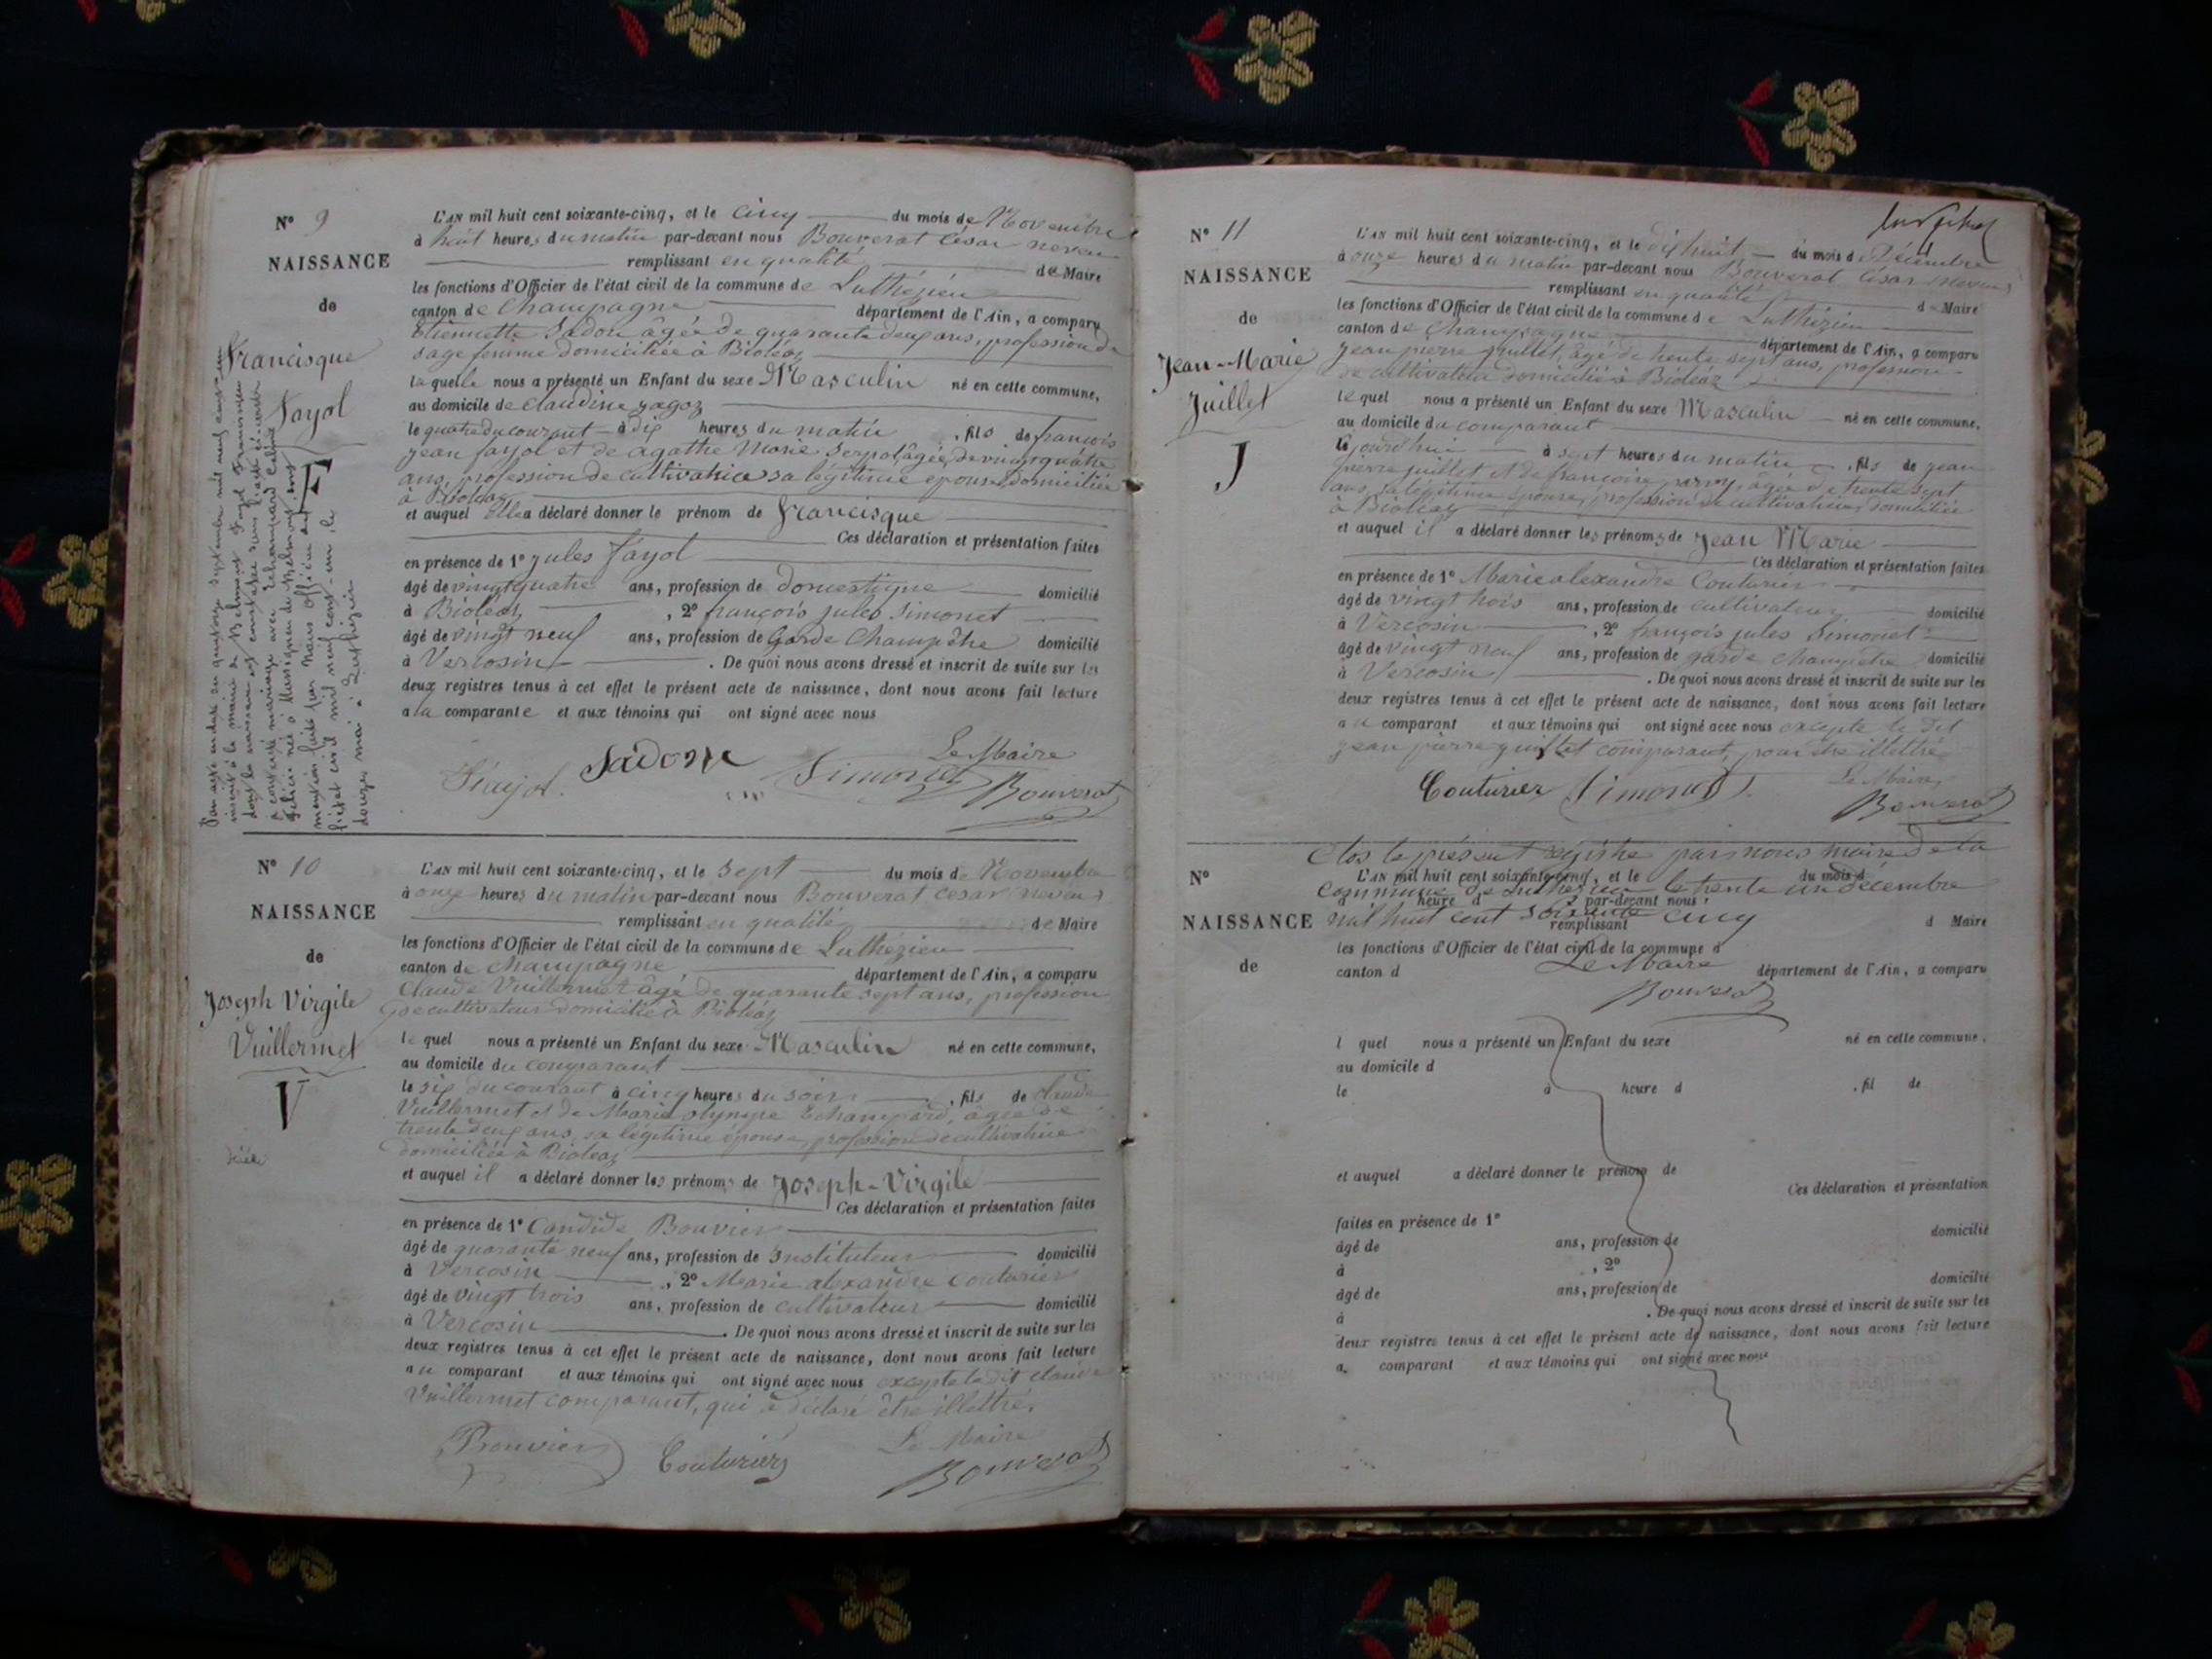 N° 9
NAISSANCE
de
Francisque
Fayol
F
L'AN mil huit cent soixante-cinq, et le cinq du mois de Novembre
à huit heures du matin par-devant nous Bouverat César neveu
remplissant en qualité de Maire
les fonctions d'Officier de l'état civil de la commune de Luthézieu
canton de Champagne département de l'Ain, a comparu
Etiennette Sadon âgée de quarante deux ans, profession de
sage femme domiciliée à Bioléaz
laquelle nous a présenté un Enfant du sexe Masculin né en cette commune,
au domicile de Claudine
le quatre du courant à dix heures du matin, fils de françois
jean fayol et de agathe Marie âgée de vingt quatre
ans, profession de cultivatrice sa légitime épouse domiciliée
à Bioléaz
et auquel Elle a déclaré donner le prénom de Francisque
Ces déclaration et présentation faites
en présence de 1° jules fayol
âgé de vingt quatre ans, profession de domestique domicilié
à Bioléaz, 2° françois jules Simonet
âgé de vingt neuf ans, profession de Garde Champêtre domicilié
à Vercosin. De quoi nous avons dressé et inscrit de suite sur les
deux registres tenus à cet effet le présent acte de naissance, dont nous avons fait lecture
a la comparante et aux témoins qui ont signé avec nous
Le Maire
Fayol Sadon Simonet Bouverat
N° 10
NAISSANCE
de
Joseph Virgile
Vuillermet
V
L'AN mil huit cent soixante-cinq, et le sept du mois de Novembre
à onze heures du matin par-devant nous Bouverat César neveu
remplissant en qualité de Maire
les fonctions d'Officier de l'état civil de la commune de Luthézieu
canton de Champagne département de l'Ain, a comparu
Claude Vuillermet âgé de quarante sept ans, profession
de cultivateur domicilié à Bioléaz
lequel nous a présenté un Enfant du sexe Masculin né en cette commune,
au domicile du comparant
le six du courant à cinq heures du soir, fils de Claude
Vuillermet et de Marie olympe Echampard, âgée de
trente deux ans, sa légitime épouse, profession de cultivatrice
domiciliée à Bioléaz
et auquel il a déclaré donner les prénoms de Joseph-Virgile
Ces déclaration et présentation faites
en présence de 1° Candide Bouvier
âgé de quarante neuf ans, profession de Instituteur domicilié
à Vercosin, 2° Marie alexandre Couturier
âgé de vingt trois ans, profession de cultivateur domicilié
à Vercosin. De quoi nous avons dressé et inscrit de suite sur les
deux registres tenus à cet effet le présent acte de naissance, dont nous avons fait lecture
au comparant et aux témoins qui ont signé avec nous excepté le dit claude
Vuillermet comparant, qui a déclaré être illettré.
Le Maire
Bouvier Couturier Bouverat
N° 11
NAISSANCE
de
Jean-Marie
Juillet
J
L'AN mil huit cent soixante-cinq, et le dix huit du mois de Décembre
à onze heures du matin par-devant nous Bouverat César neveu
remplissant en qualité de Maire
les fonctions d'Officier de l'état civil de la commune de Luthézieu
canton de Champagne département de l'Ain, a comparu
jean pierre juillet, âgé de trente sept ans, profession
de cultivateur domicilié à Bioléaz
lequel nous a présenté un Enfant du sexe Masculin né en cette commune,
au domicile du comparant
à sept heures du matin, fils de jean
pierre juillet et de françoise âgée de trente sept
ans, sa légitime épouse, profession de cultivatrice, domiciliée
à Bioléaz
et auquel il a déclaré donner les prénoms de Jean Marie
Ces déclaration et présentation faites
en présence de 1° Marie alexandre Couturier
âgé de vingt trois ans, profession de cultivateur domicilié
à Vercosin, 2° françois jules Simonet
âgé de vingt neuf ans, profession de garde champêtre domicilié
à Vercosin. De quoi nous avons dressé et inscrit de suite sur les
deux registres tenus à cet effet le présent acte de naissance, dont nous avons fait lecture
au comparant et aux témoins qui ont signé avec nous excepté le dit
jean pierre juillet comparant, pour être illettré
Le Maire
Couturier Simonet Bouverat
Clos le présent registre par nous maire de la
commune de Luthézieu le trente un décembre
mil huit cent soixante cinq
Le Maire
Bouverat
N°
NAISSANCE
de
L'AN mil huit cent soixante-cinq, et le du mois d
heure d par-devant nous
remplissant d Maire
les fonctions d'Officier de l'état civil de la commune d
canton d département de l'Ain, a comparu
l quel nous a présenté un Enfant du sexe né en cette commune,
au domicile d
le à heure d , fil de
et auquel a déclaré donner le prénom de
Ces déclaration et présentation
faites en présence de 1°
âgé de ans, profession de domicilié
à , 2°
âgé de ans, profession de domicilié
à . De quoi nous avons dressé et inscrit de suite sur les
deux registres tenus à cet effet le présent acte de naissance, dont nous avons fait lecture
a comparant et aux témoins qui ont signé avec nous